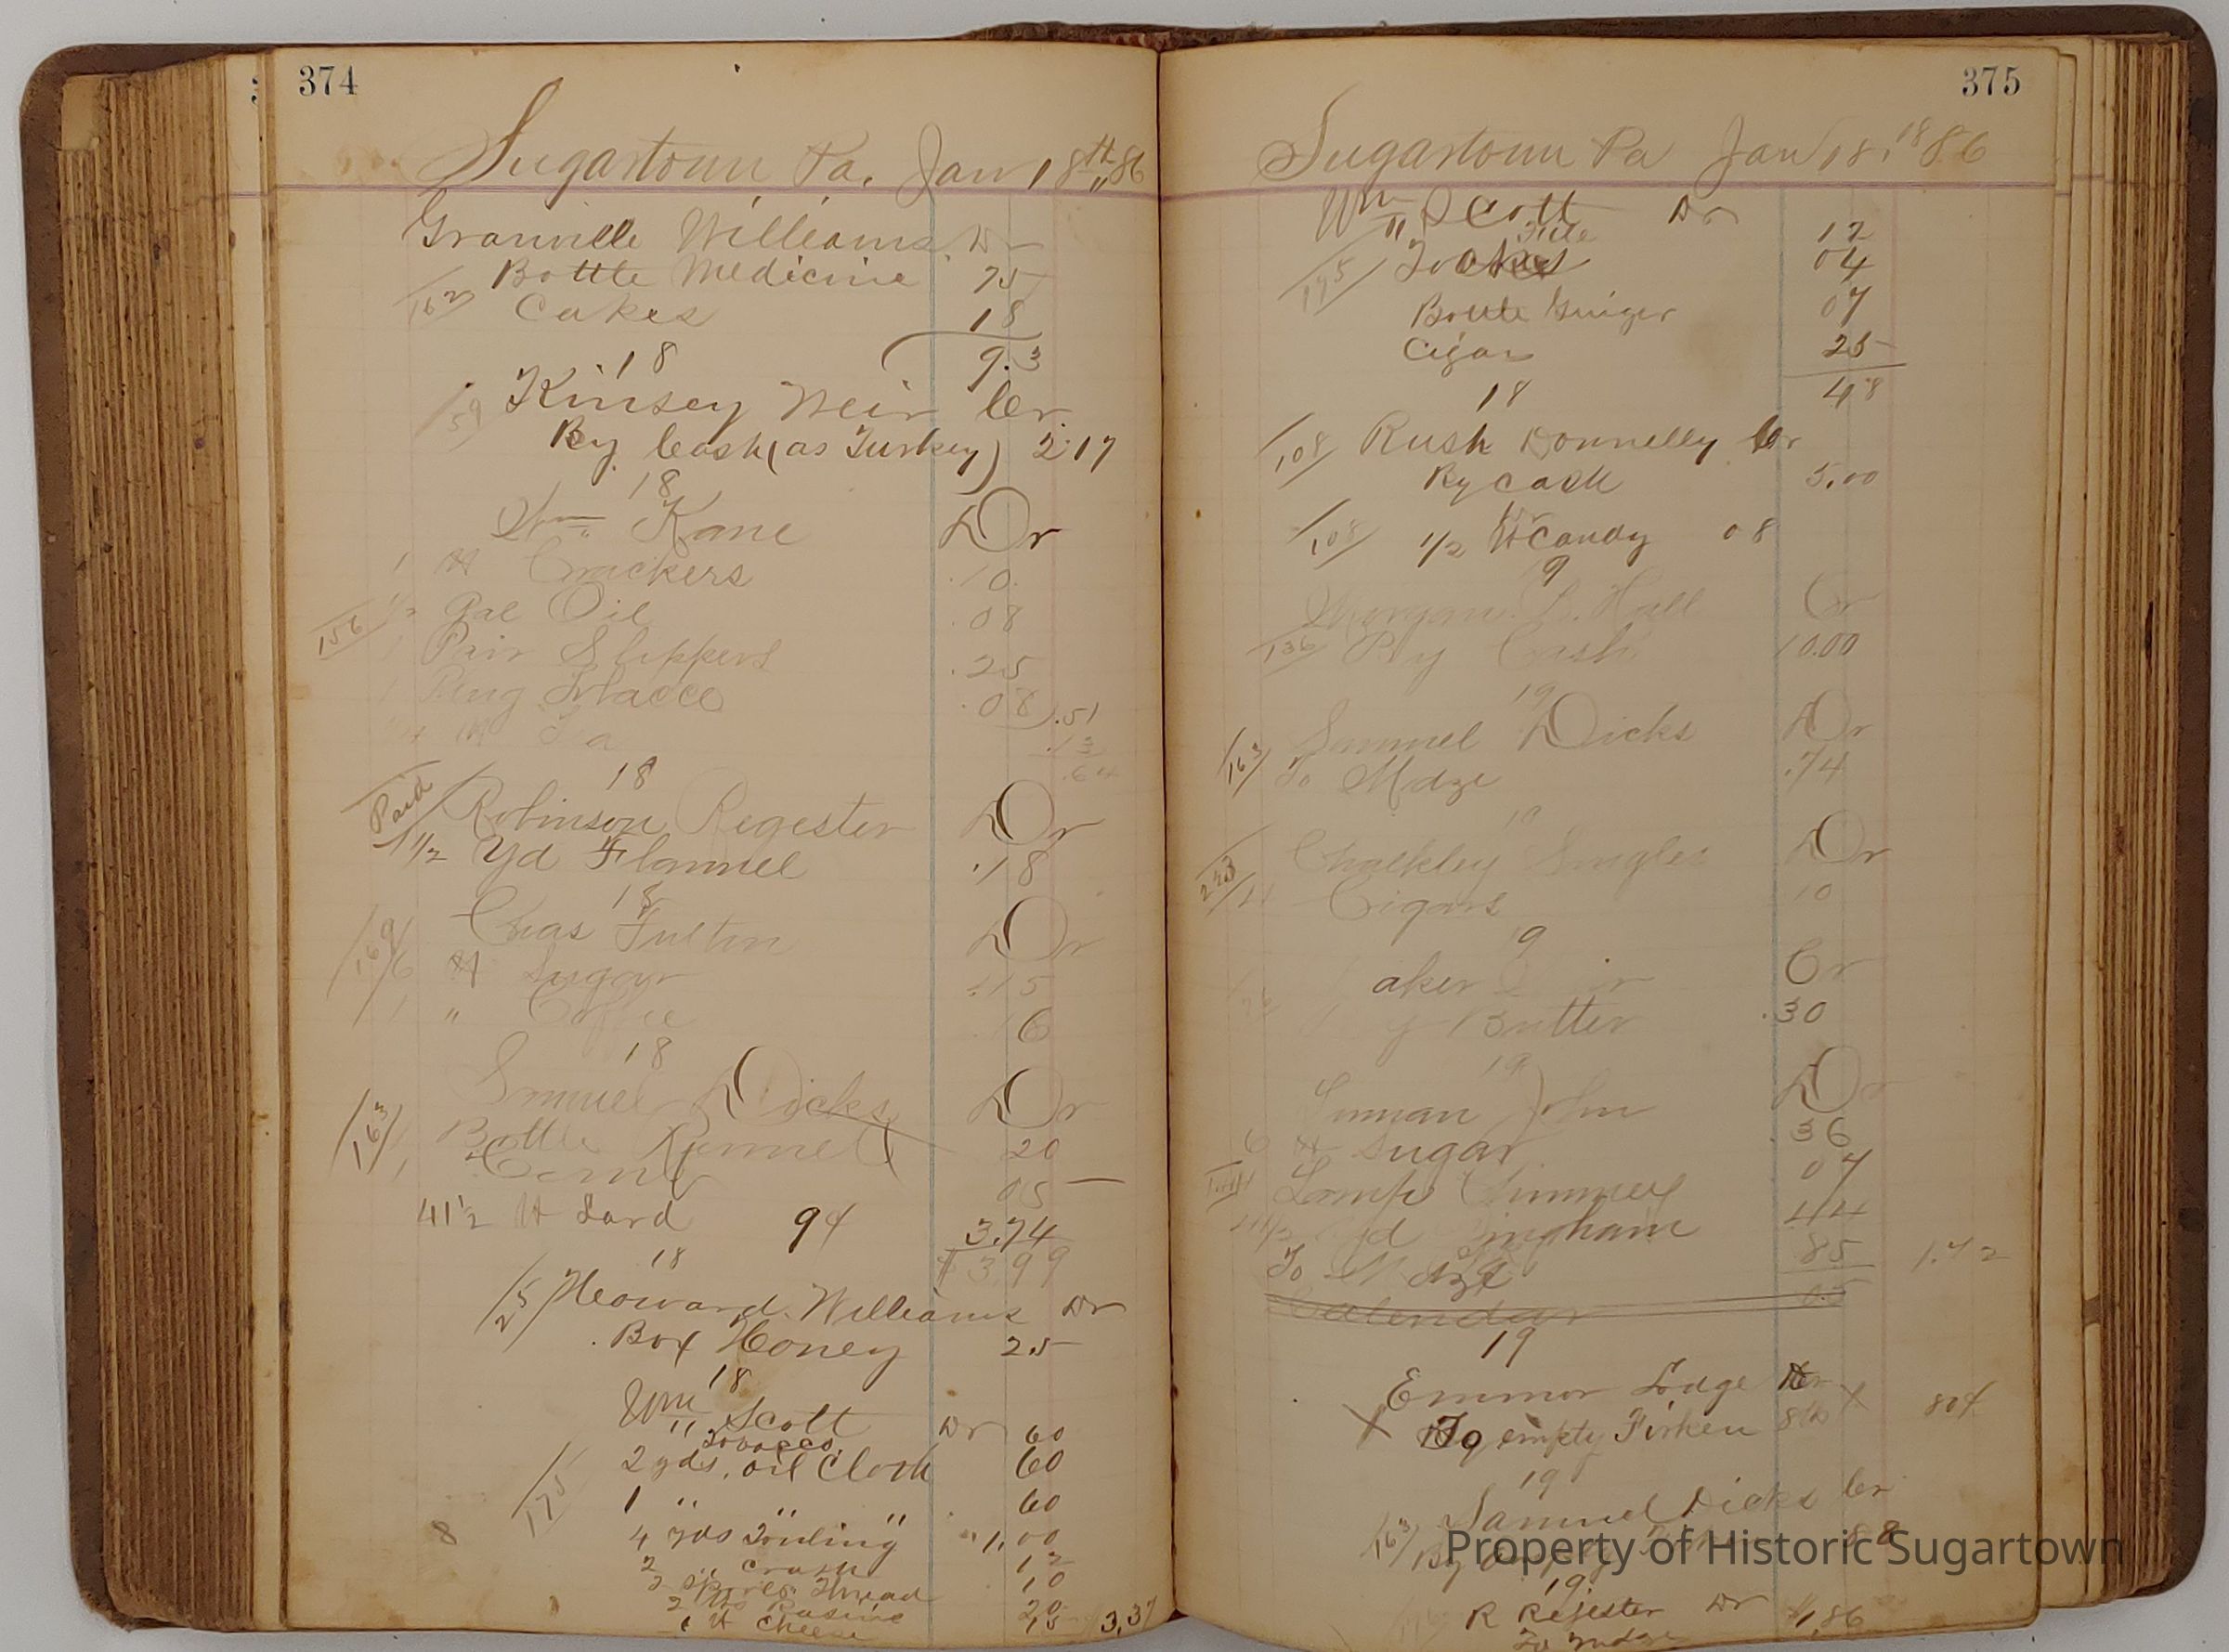 374
Sugartown Pa. Jan 18th 86
Granville Williams Dr
Bottle Medicine 75
162 Cakes 18
93
18
59 Kinsey Weir Cr
By Cash (as Turkey) 2.17
18
Wm Kane Dr
1 lb Crackers .10
156 1/2 Gal Oil .08
1 Pair Slippers .25
1 Plug Tobacco .08 .51
1/4 lb Tea .13
.64
18
Paid Robinson Regester Dr
1 1/2 Yd Flannel .18
18
Chas Fulton Dr
169 6 lb Sugar
1 " Coffee
18
Samuel Dicks Dr
163 1 Bottle 20
1 05
41 1/2 lb Lard 9¢ 3.74
$3.99
18
25 Howard Williams Dr
Box Honey 25
18
Wm Scott Dr
Tobacco 60
2 yds. oil Cloth 60
175 1 " " " 60
8 4 yds 1.00
2 " Crash 12
2 Spools Thread 10
2 lbs Rasins 20
1 lb Cheese 15 3,37
375
Sugartown Pa Jan 18, 1886
Wm Scott Dr
12
04
Bottle Ginger 07
Cigar 25
48
18
108 Rush Donnelly Cr
By cash 5.00
108 1/2 lb Candy 08
9
Morgan L. Hall Cr
136 By Cash 10.00
19
Samuel Dicks Dr
163 To Mdze .74
19
Chalkley Dr
Cigars 10
9
aker Cr
y Butter .30
19
John Dr
6 lb Sugar .36
Lamp Chimney 07
Gingham 44
To Mdze 85 1.72
Calendar 05
19
Emmor Lodge Cr
X By empty Firken 80¢ X 80¢
19
Samuel Dicks Cr
163 By empty 88
19
R Regester Dr 1,86
To Mdze
Property of Historic Sugartown